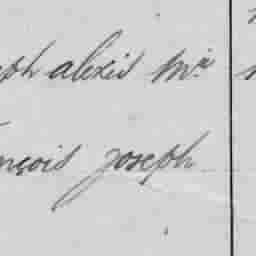 eph alexis Mie
nçois joseph